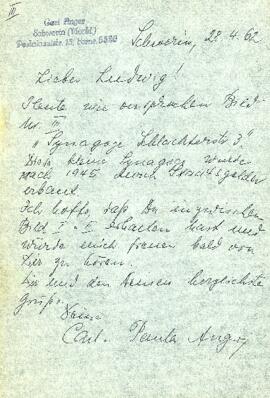 III
Carl Anger
Schwerin (Meckl)
Schwerin, 28.4.62
Lieber Ludwig!
Heute wie versprochen Bild
Nr. III
"Synagoge Schlachterstr. 3"
Diese kleine Synagoge wurde
nach 1945 durch Staatsgelder
erbaut.
Ich hoffe, daß Du inzwischen
Bild I + II erhalten hast und
würde mich freuen bald von
Dir zu hören.
Dir und den Deinen herzlichste
Grüße
Deine
Carl. Anger